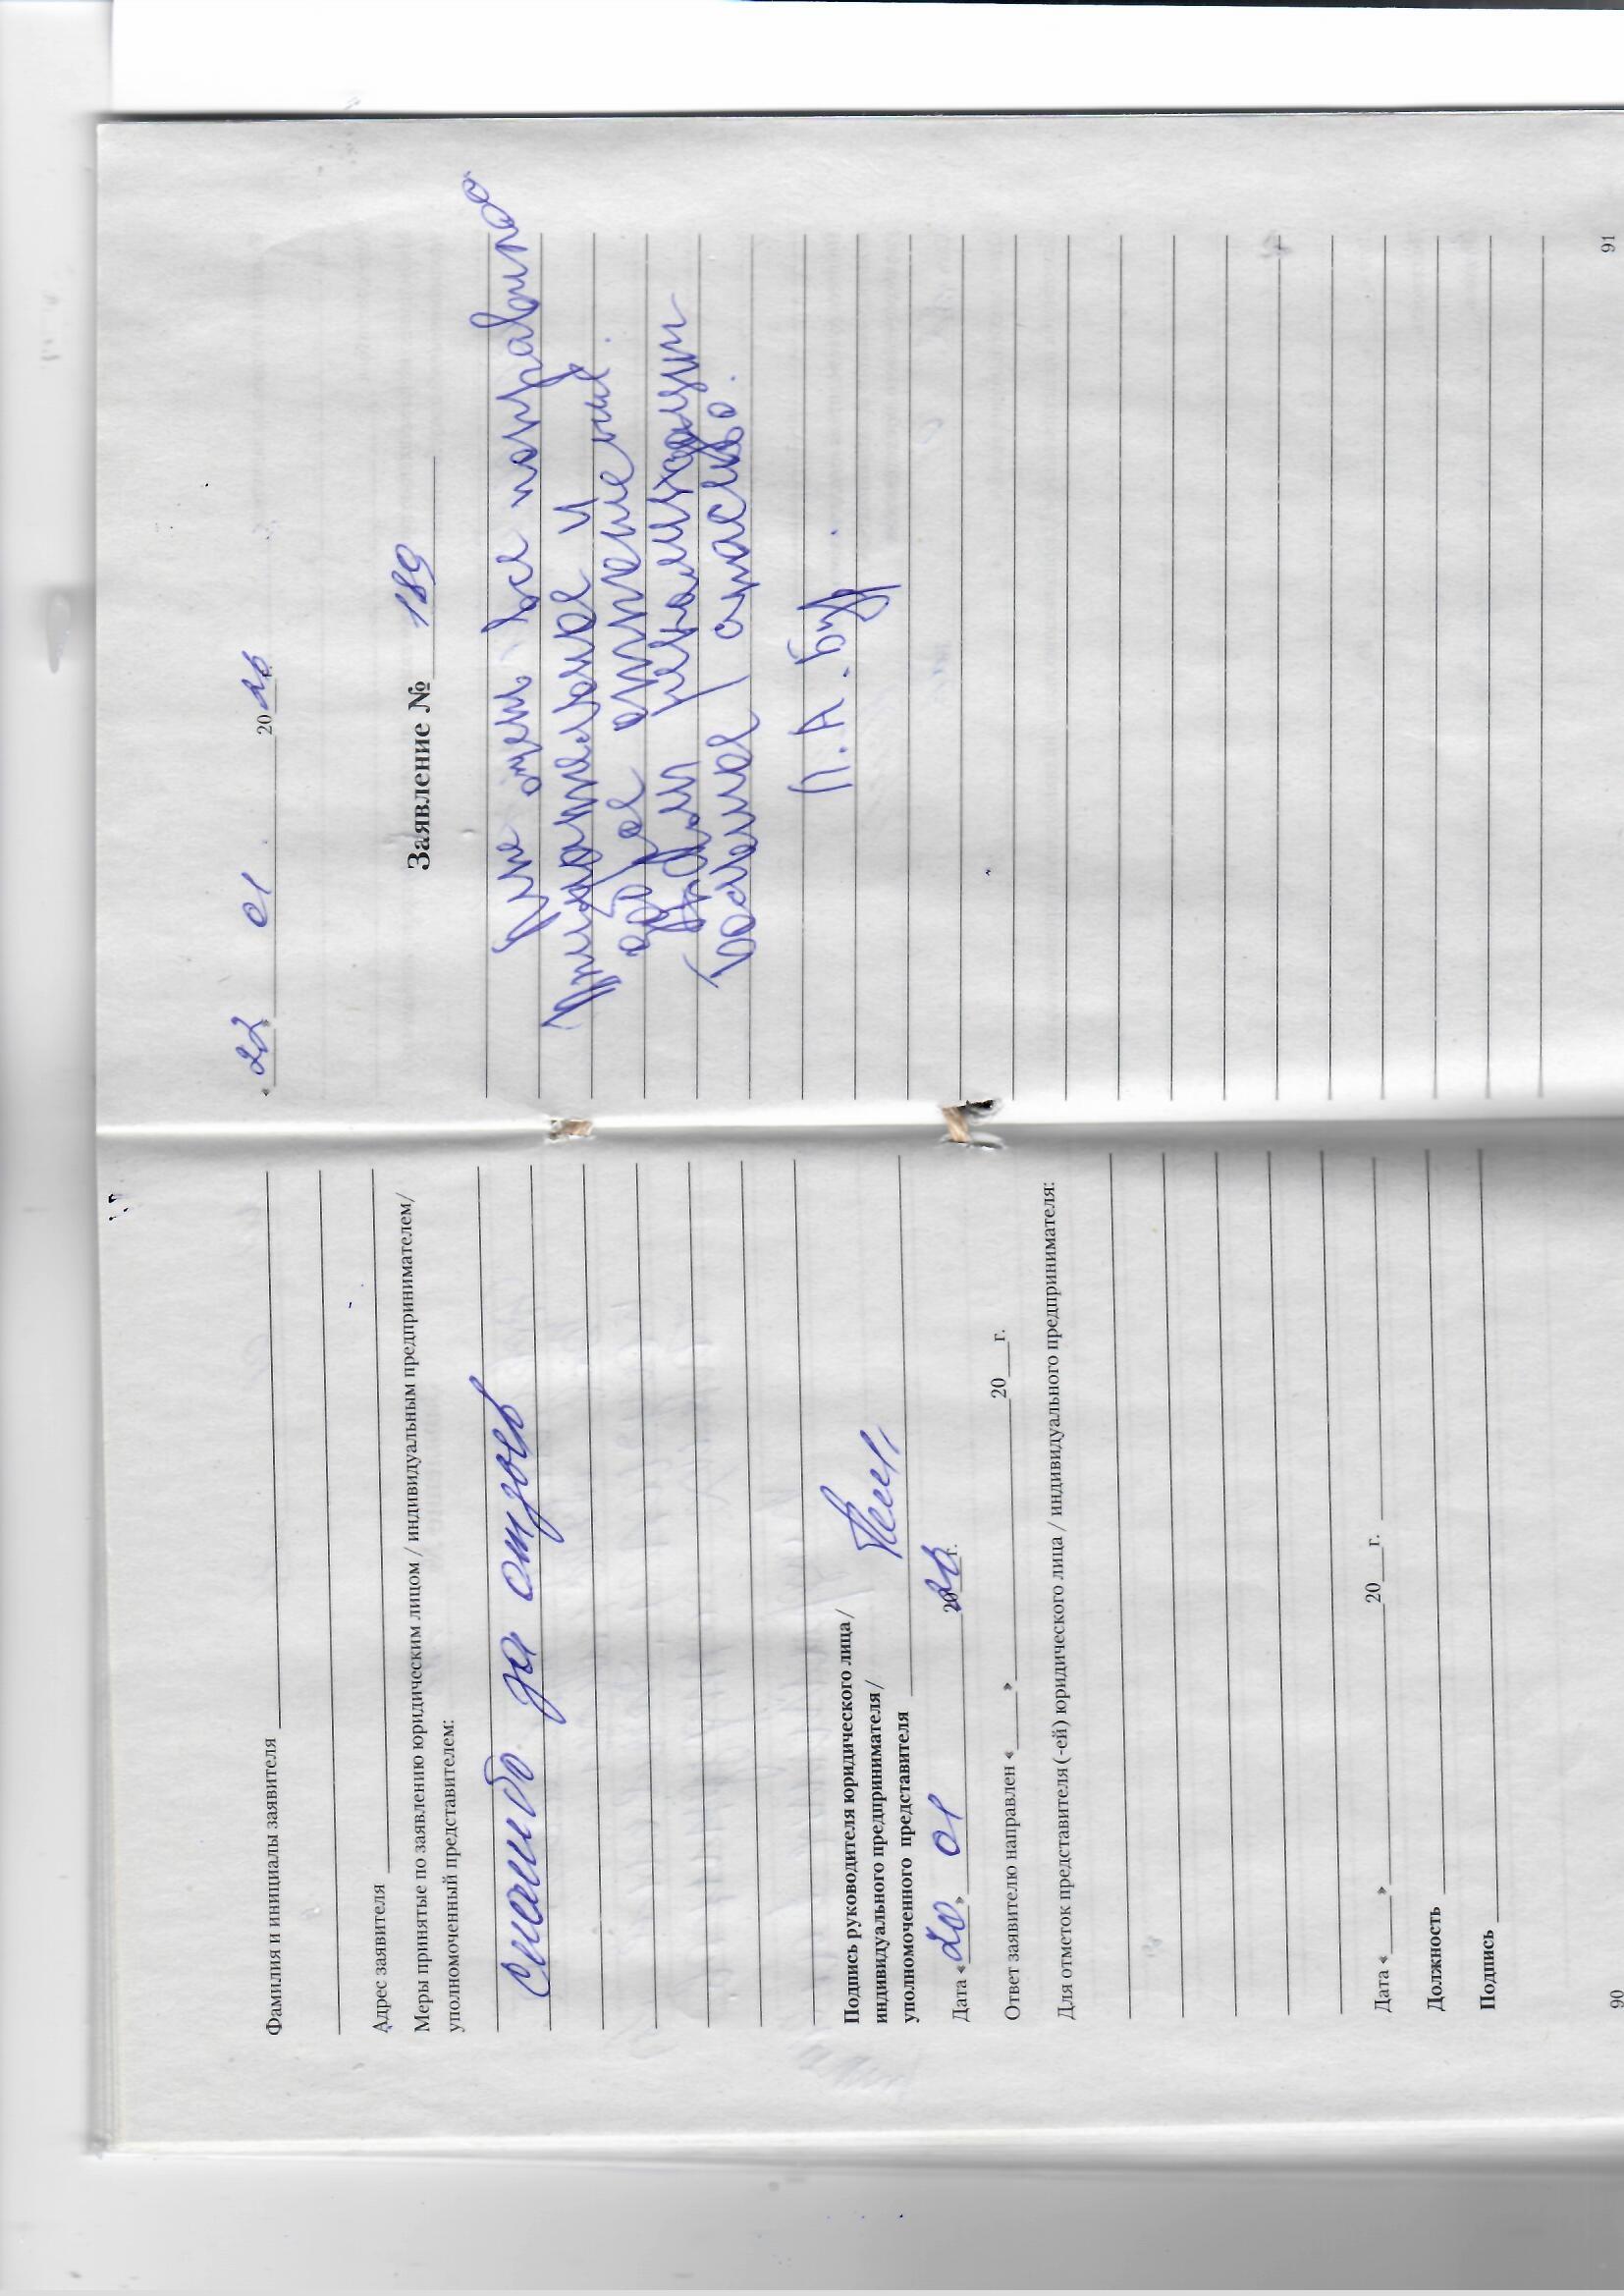 Фамилия и инициалы заявителя
Адрес заявителя
Меры принятые по заявлению юридическим лицом / индивидуальным предпринимателем/
уполномоченный представителем:
Спасибо за отзыв
Подпись руководителя юридического лица/
индивидуального предпринимателя/
уполномоченного представителя
Дата «20» 01 2026 г.
Ответ заявителю направлен «___» 20___г.
Для отметок представителя (-ей) юридического лица / индивидуального предпринимателя:
Дата «___» 20___г.
Должность
Подпись
90
«22» 01 2026
Заявление № 189
Мне очень все понравилось
Внимательное и
доброе отношение.
рекомендации
Большое спасибо.
П.А.
91